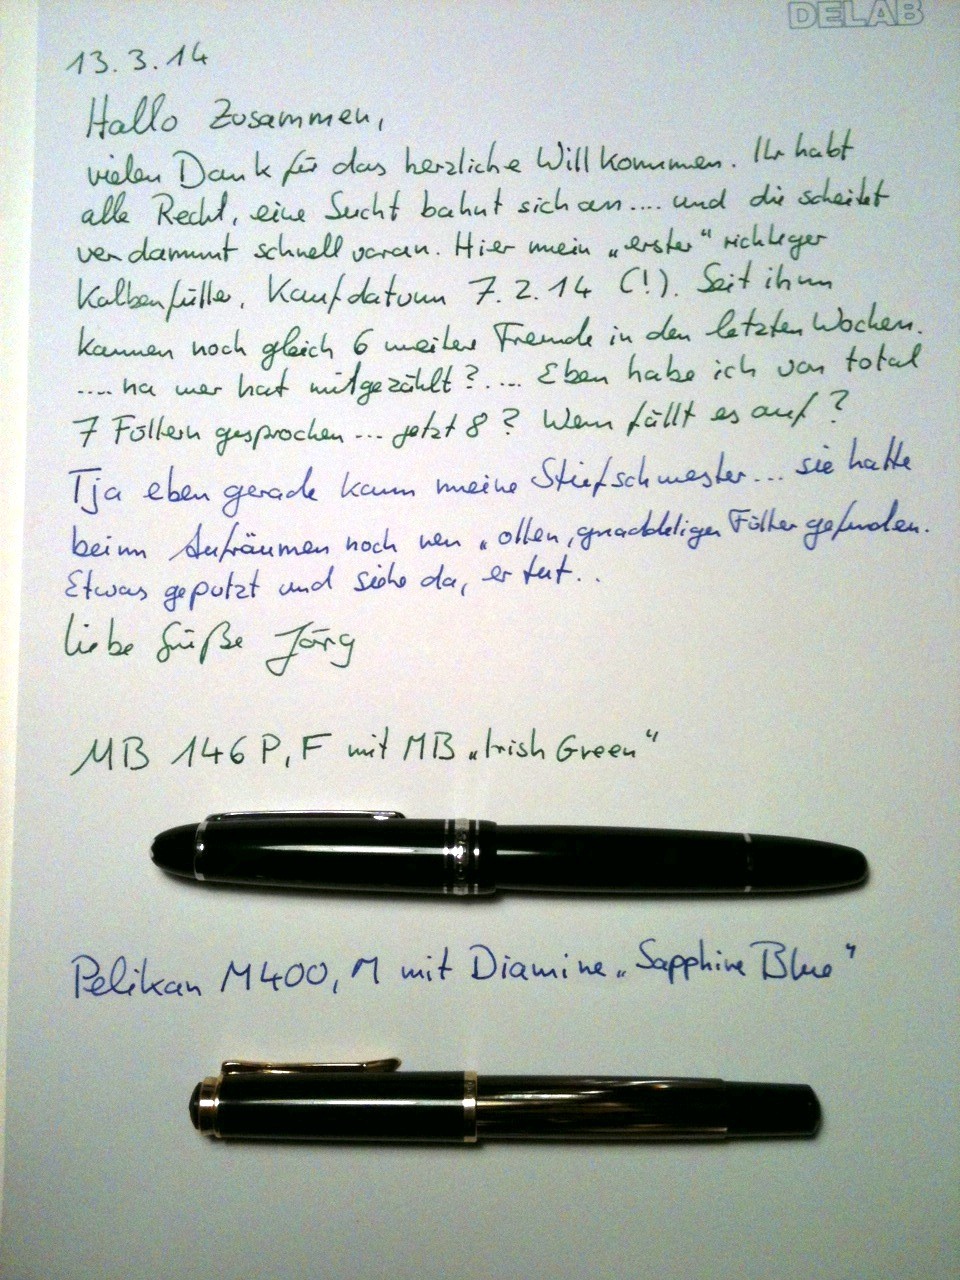 DELAB
13.3.14
Hallo Zusammen,
vielen Dank für das herzliche Willkommen. Ihr habt
alle Recht, eine Sucht bahnt sich an.... und die scheitet
verdammt schnell voran. Hier mein „erster" richtiger
Kolbenfüller, Kaufdatum 7.2.14 (!). Seit ihm
kammen noch gleich 6 weitere Freunde in den letzten Wochen.
.... na wer hat mitgezählt?.... Eben habe ich von total
7 Füllern gesprochen... jetzt 8? Wem fällt es auf?
Tja eben gerade kam meine Stiefschwester... sie hatte
beim Aufräumen noch nen „ollen, gnaddeligen Füller gefunden.
Etwas geputzt und siehe da, er tut..
liebe Grüße Jörg
MB 146 P, F mit MB „Irish Green"
Pelikan M400, M mit Diamine „Sapphire Blue"